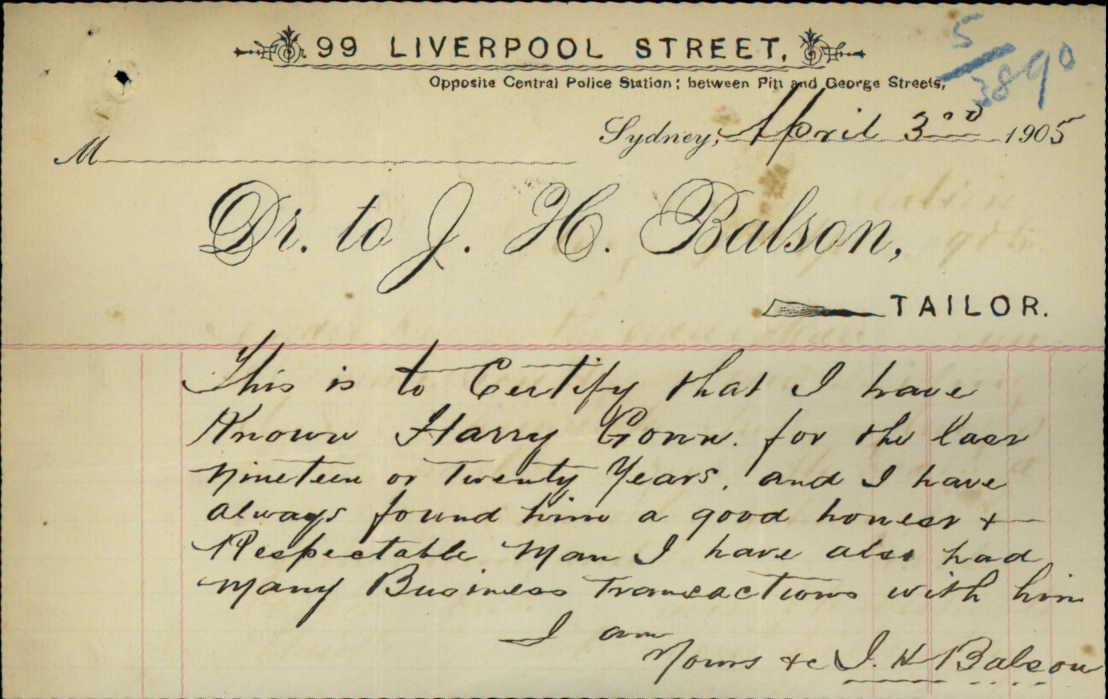 99 LIVERPOOL STREET,
5/3890
Opposite Central Police Station; between Pitt and George Streets,
Sydney, April 3rd 1905
M
Dr. to J. H. Balson,
TAILOR.
This is to Certify that I have
Known Harry Gonn. for the last
nineteen or twenty Years, and I have
always found him a good honest &
Respectable Man I have also had
many Business transactions with him
I am
Yours &c J. H Balson